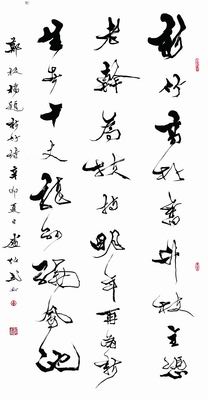 新竹高於舊竹枝全憑
老幹為扶持明年再有新
生者十丈龍孫繞鳳池
鄭板橋題新竹詩辛卯夏